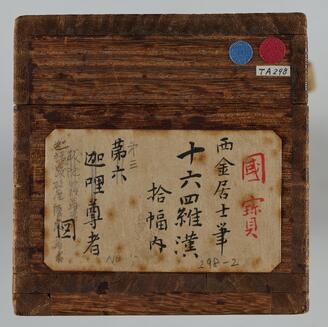 TA298
國寶
西金居士筆
十六四維漢
拾幅內
298-2
第三
第六
迦哩尊者
図
No